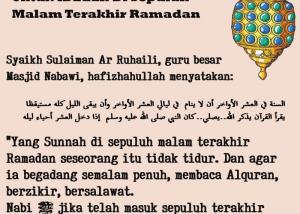 Malam Terakhir Ramadan
Syaikh Sulaiman Ar Ruhaili, guru besar
Masjid Nabawi, hafizhahullah menyatakan:
السنة في العشر الأواخر أن لا ينام في ليالي العشر الأواخر وأن يبقى الليل كله مستيقظا
يقرأ القرآن يذكر الله..يصلي..كان النبي صلى الله عليه وسلم إذا دخل العشر أحياء ليله
"Yang Sunnah di sepuluh malam terakhir
Ramadan seseorang itu tidak tidur. Dan agar
ia begadang semalam penuh, membaca Alquran,
berzikir, bersalawat.
Nabi ﷺ jika telah masuk sepuluh terakhir